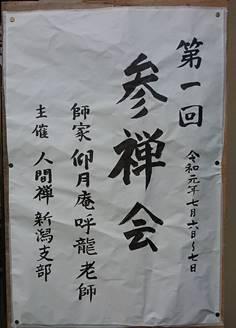 第一回
令和元年七月六日～七日
参禅会
師家 仰月庵呼龍老師
主催 人間禅 新潟支部